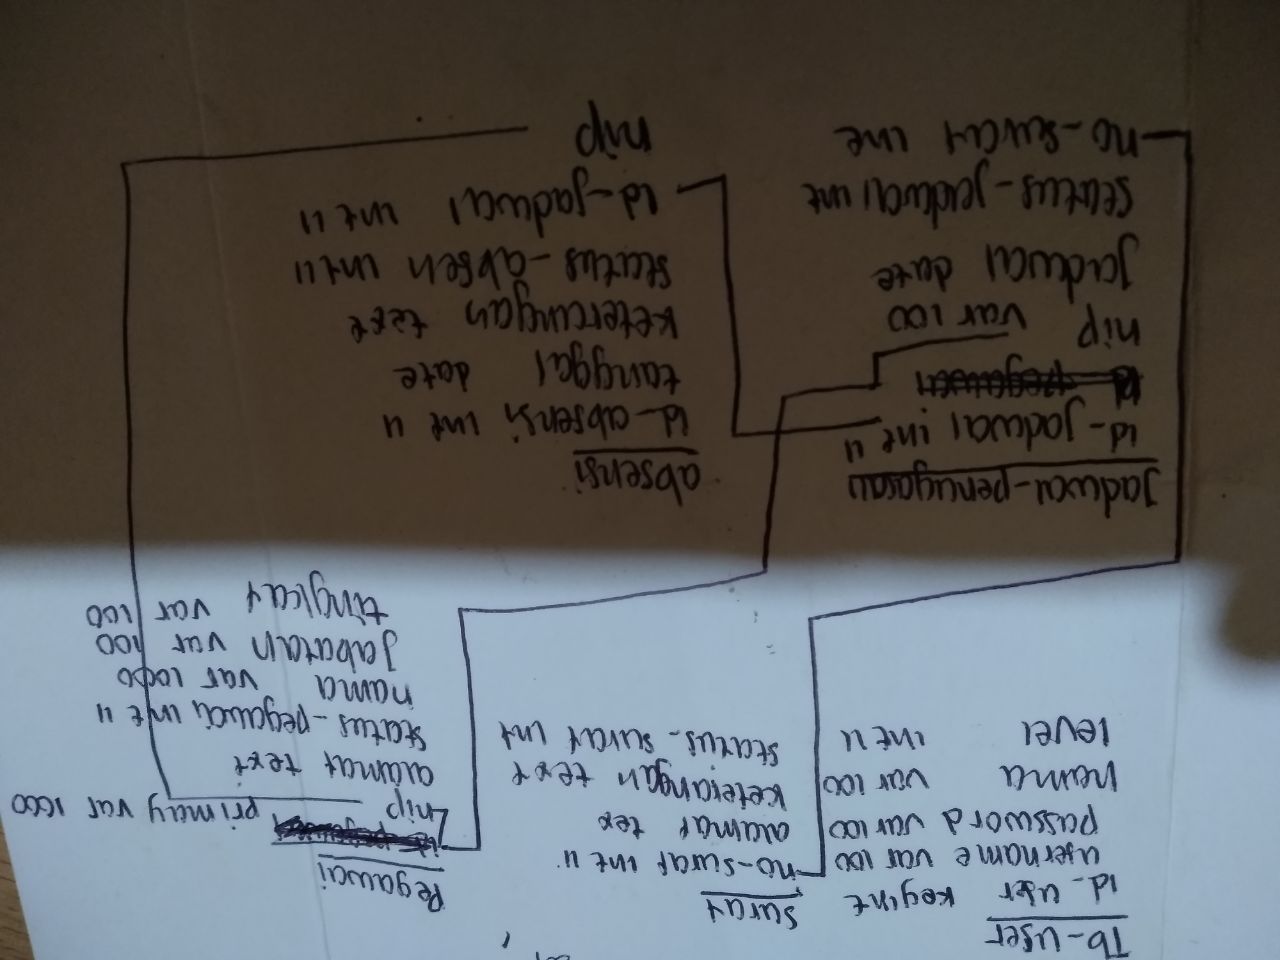 Tb-user
id-user keyint
username var 100
password var 100
nama var 100
level int 11
surat
no-surat int 11
alamat tex
keterangan text
status-surat int
Pegawai
nip primary var 1000
alamat text
status-pegawai int 11
nama var 1000
jabatan var 100
tingkat var 100
jadwal-penugasan
id-jadwal int 11
nip var 100
jadwal date
status-jadwal int
no-surat int
absensi
id-absensi int 11
tanggal date
keterangan text
status-absen int 11
id-jadwal int 11
nip